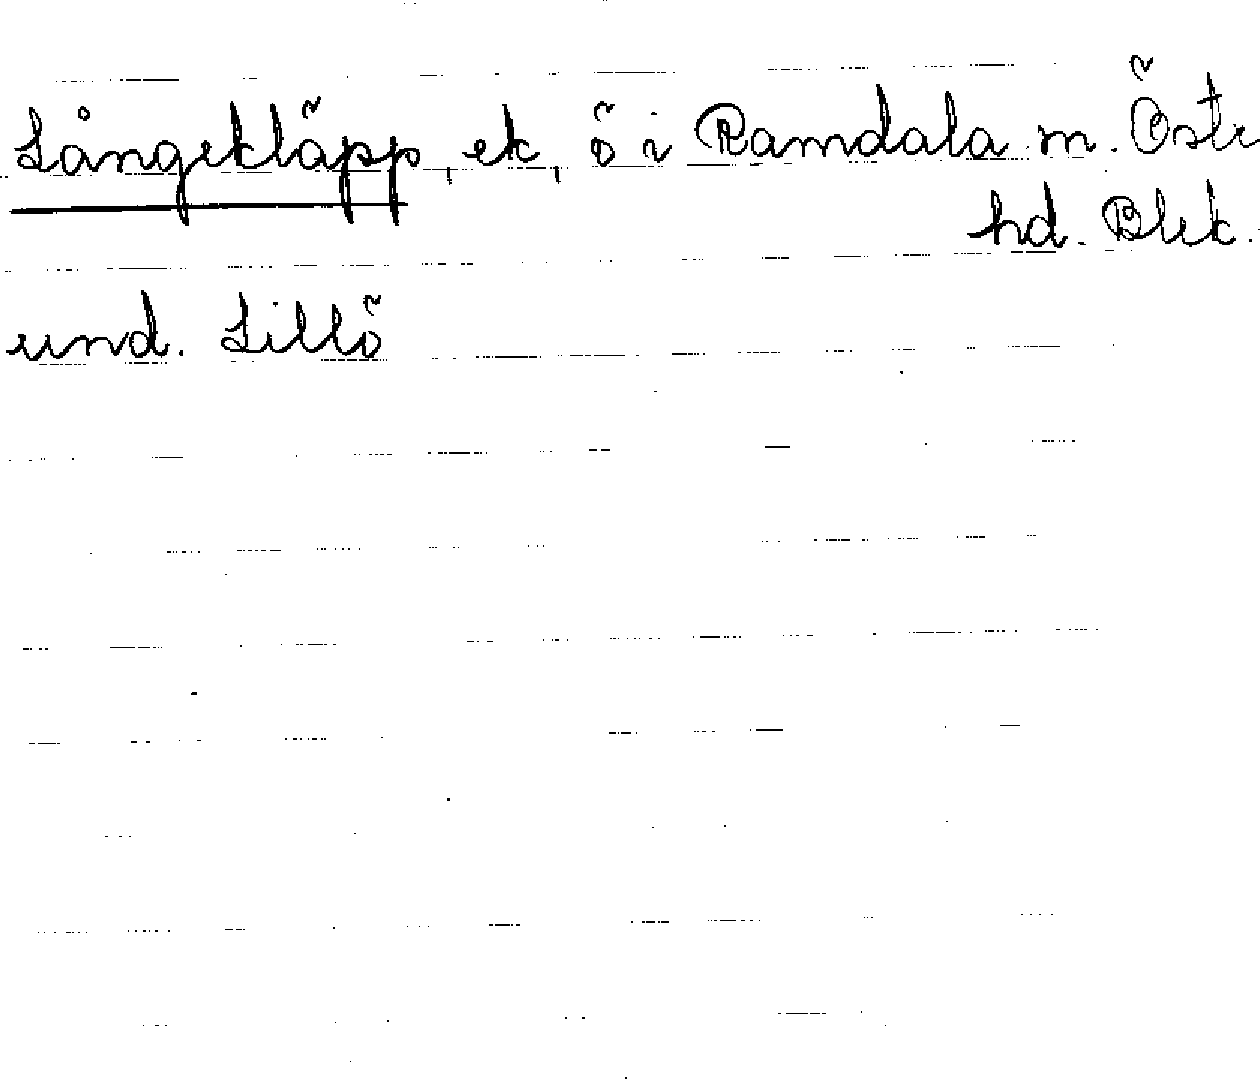 Långekläpp, ek, ö i Ramdala sn. Östr
hd. Blek.
und. Lillö